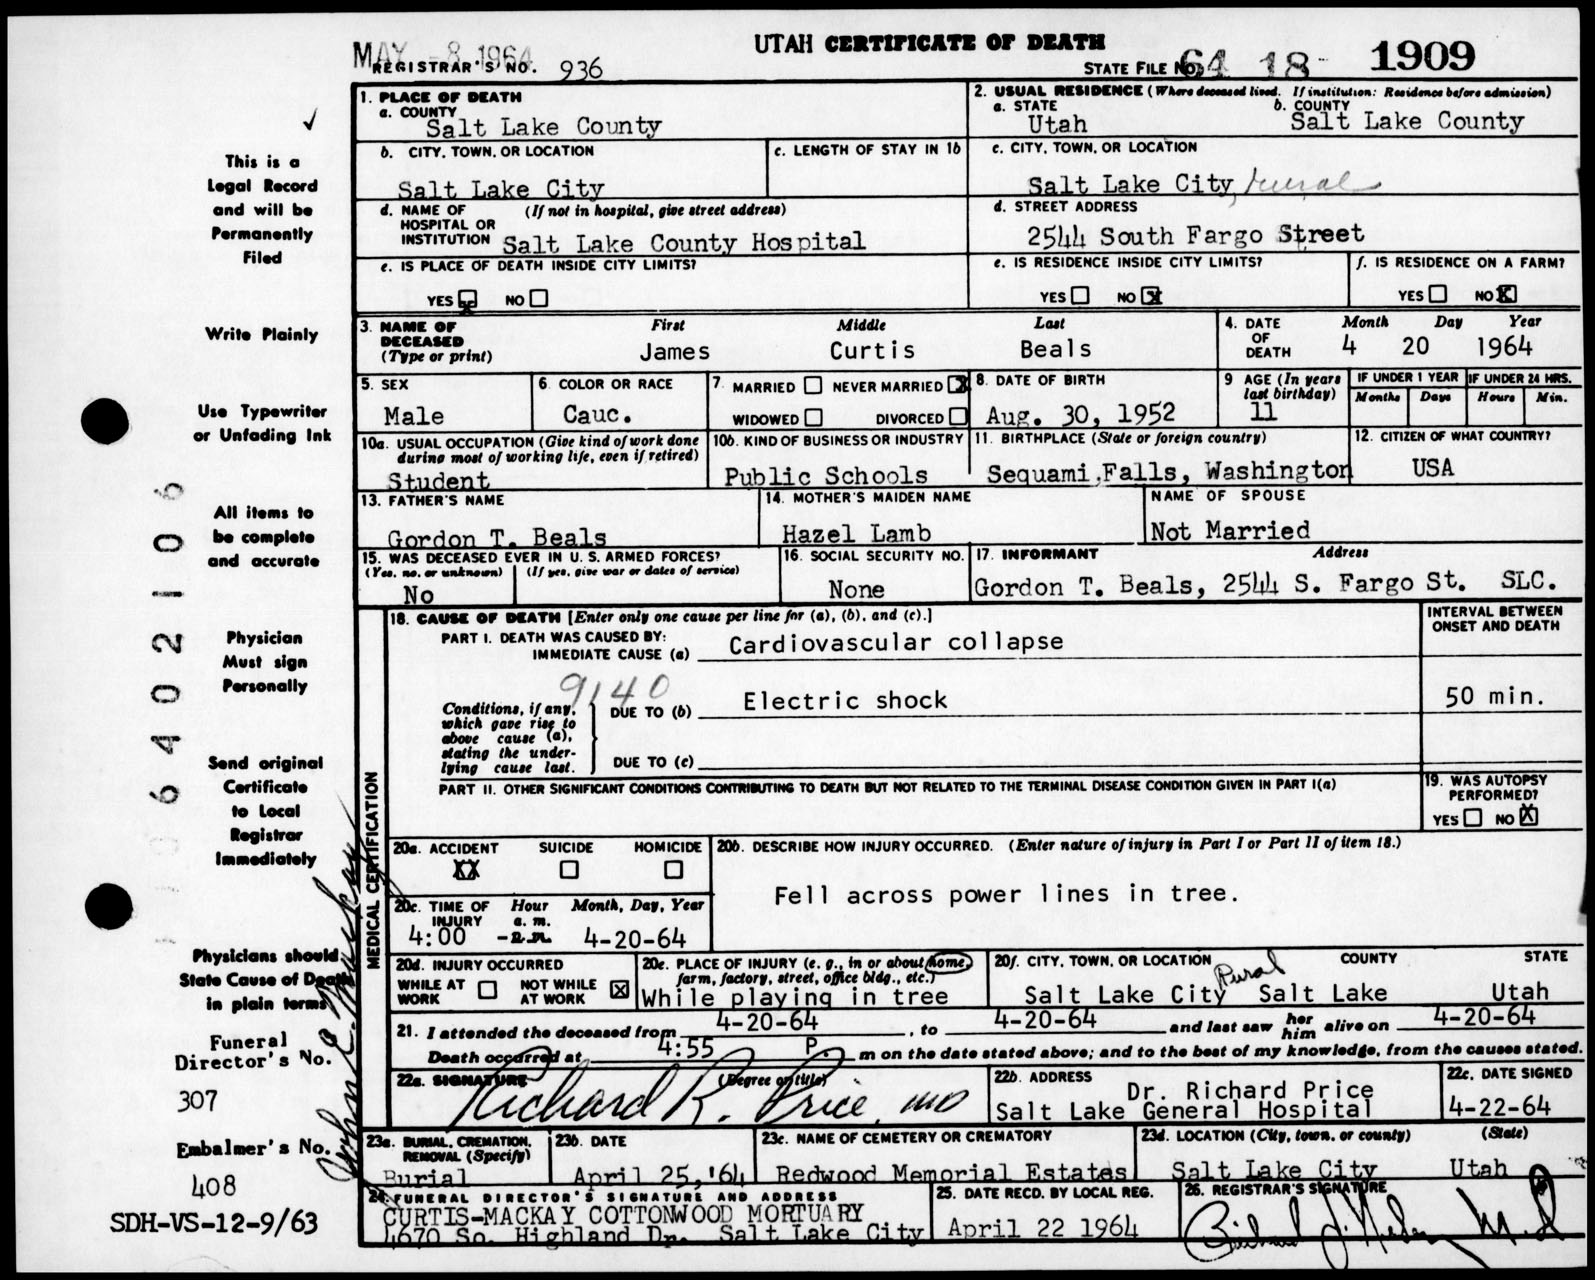 MAY -8 1964
UTAH CERTIFICATE OF DEATH
REGISTRAR'S NO. 936
STATE FILE NO. 64 18 1909
1. PLACE OF DEATH
a. COUNTY
Salt Lake County
2. USUAL RESIDENCE (Where deceased lived. If institution: Residence before admission)
a. STATE b. COUNTY
Utah Salt Lake County
b. CITY, TOWN, OR LOCATION
Salt Lake City
c. LENGTH OF STAY IN 1b
c. CITY, TOWN, OR LOCATION
Salt Lake City, rural
d. NAME OF HOSPITAL OR INSTITUTION (If not in hospital, give street address)
Salt Lake County Hospital
d. STREET ADDRESS
2544 South Fargo Street
e. IS PLACE OF DEATH INSIDE CITY LIMITS?
YES X NO
e. IS RESIDENCE INSIDE CITY LIMITS?
YES NO X
f. IS RESIDENCE ON A FARM?
YES NO X
3. NAME OF DECEASED (Type or print)
First Middle Last
James Curtis Beals
4. DATE OF DEATH
Month Day Year
4 20 1964
5. SEX
Male
6. COLOR OR RACE
Cauc.
7. MARRIED NEVER MARRIED X
WIDOWED DIVORCED
8. DATE OF BIRTH
Aug. 30, 1952
9 AGE (In years last birthday)
11
IF UNDER 1 YEAR
Months Days
IF UNDER 24 HRS.
Hours Min.
10a. USUAL OCCUPATION (Give kind of work done during most of working life, even if retired)
Student
10b. KIND OF BUSINESS OR INDUSTRY
Public Schools
11. BIRTHPLACE (State or foreign country)
Sequami Falls, Washington
12. CITIZEN OF WHAT COUNTRY?
USA
13. FATHER'S NAME
Gordon T. Beals
14. MOTHER'S MAIDEN NAME
Hazel Lamb
NAME OF SPOUSE
Not Married
15. WAS DECEASED EVER IN U. S. ARMED FORCES?
(Yes, no, or unknown) (If yes, give war or dates of service)
No
16. SOCIAL SECURITY NO.
None
17. INFORMANT Address
Gordon T. Beals, 2544 S. Fargo St. SLC.
MEDICAL CERTIFICATION
18. CAUSE OF DEATH [Enter only one cause per line for (a), (b), and (c).]
PART I. DEATH WAS CAUSED BY:
IMMEDIATE CAUSE (a) Cardiovascular collapse
INTERVAL BETWEEN ONSET AND DEATH
9140
Conditions, if any, which gave rise to above cause (a), stating the underlying cause last.
DUE TO (b) Electric shock
50 min.
DUE TO (c)
PART II. OTHER SIGNIFICANT CONDITIONS CONTRIBUTING TO DEATH BUT NOT RELATED TO THE TERMINAL DISEASE CONDITION GIVEN IN PART I(a)
19. WAS AUTOPSY PERFORMED?
YES NO X
20a. ACCIDENT SUICIDE HOMICIDE
XX
20b. DESCRIBE HOW INJURY OCCURRED. (Enter nature of injury in Part I or Part II of item 18.)
Fell across power lines in tree.
20c. TIME OF INJURY Hour a. m. p. m. Month, Day, Year
4:00 4-20-64
20d. INJURY OCCURRED
WHILE AT WORK NOT WHILE AT WORK X
20e. PLACE OF INJURY (e. g., in or about home, farm, factory, street, office bldg., etc.)
While playing in tree
20f. CITY, TOWN, OR LOCATION COUNTY STATE
Salt Lake City Rural Salt Lake Utah
21. I attended the deceased from 4-20-64, to 4-20-64 and last saw her him alive on 4-20-64
Death occurred at 4:55 P. m on the date stated above; and to the best of my knowledge, from the causes stated.
22a. SIGNATURE (Degree or title)
Richard R. Price, MD
22b. ADDRESS
Dr. Richard Price
Salt Lake General Hospital
22c. DATE SIGNED
4-22-64
23a. BURIAL, CREMATION, REMOVAL (Specify)
Burial
23b. DATE
April 25, '64
23c. NAME OF CEMETERY OR CREMATORY
Redwood Memorial Estates
23d. LOCATION (City, town, or county) (State)
Salt Lake City Utah
24. FUNERAL DIRECTOR'S SIGNATURE AND ADDRESS
CURTIS-MACKAY COTTONWOOD MORTUARY
4670 So. Highland Dr. Salt Lake City
25. DATE RECD. BY LOCAL REG.
April 22 1964
26. REGISTRAR'S SIGNATURE
M.D
This is a
Legal Record
and will be
Permanently
Filed
Write Plainly
Use Typewriter
or Unfading Ink
All items to
be complete
and accurate
Physician
Must sign
Personally
Send original
Certificate
to Local
Registrar
Immediately
Physicians should
State Cause of Death
in plain terms
Funeral
Director's No.
307
Embalmer's No.
408
SDH-VS-12-9/63
6402106